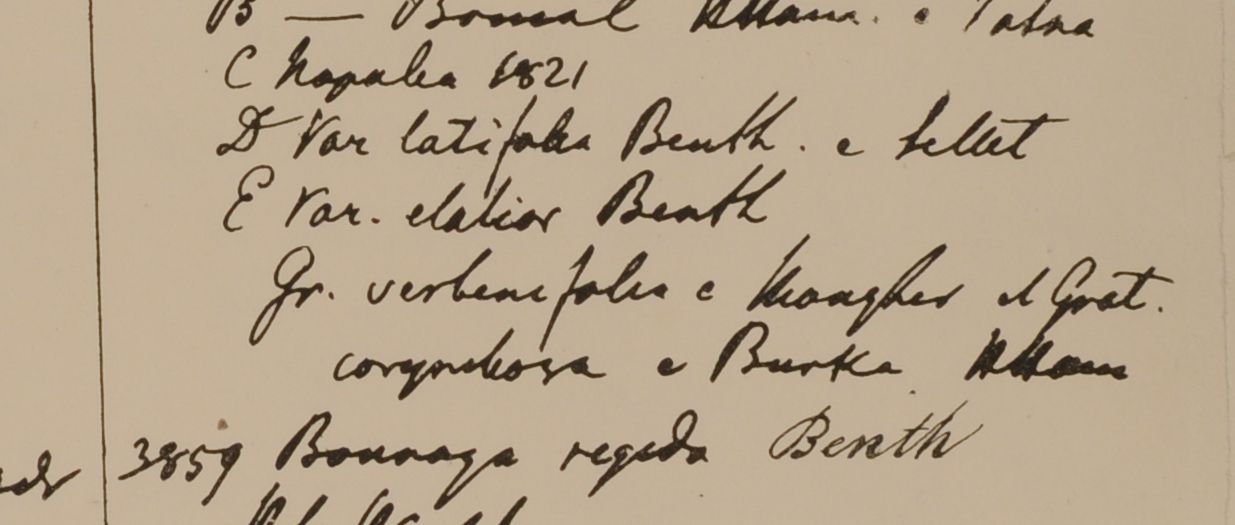 B — e Patna
C Napalia 1821
D Var latifolia Benth. e Sillet
E Var. elatior Benth
Gr. verbenifolia e Mongher et Grat.
corymbosa e Burka
3859 Bonnaya regida Benth